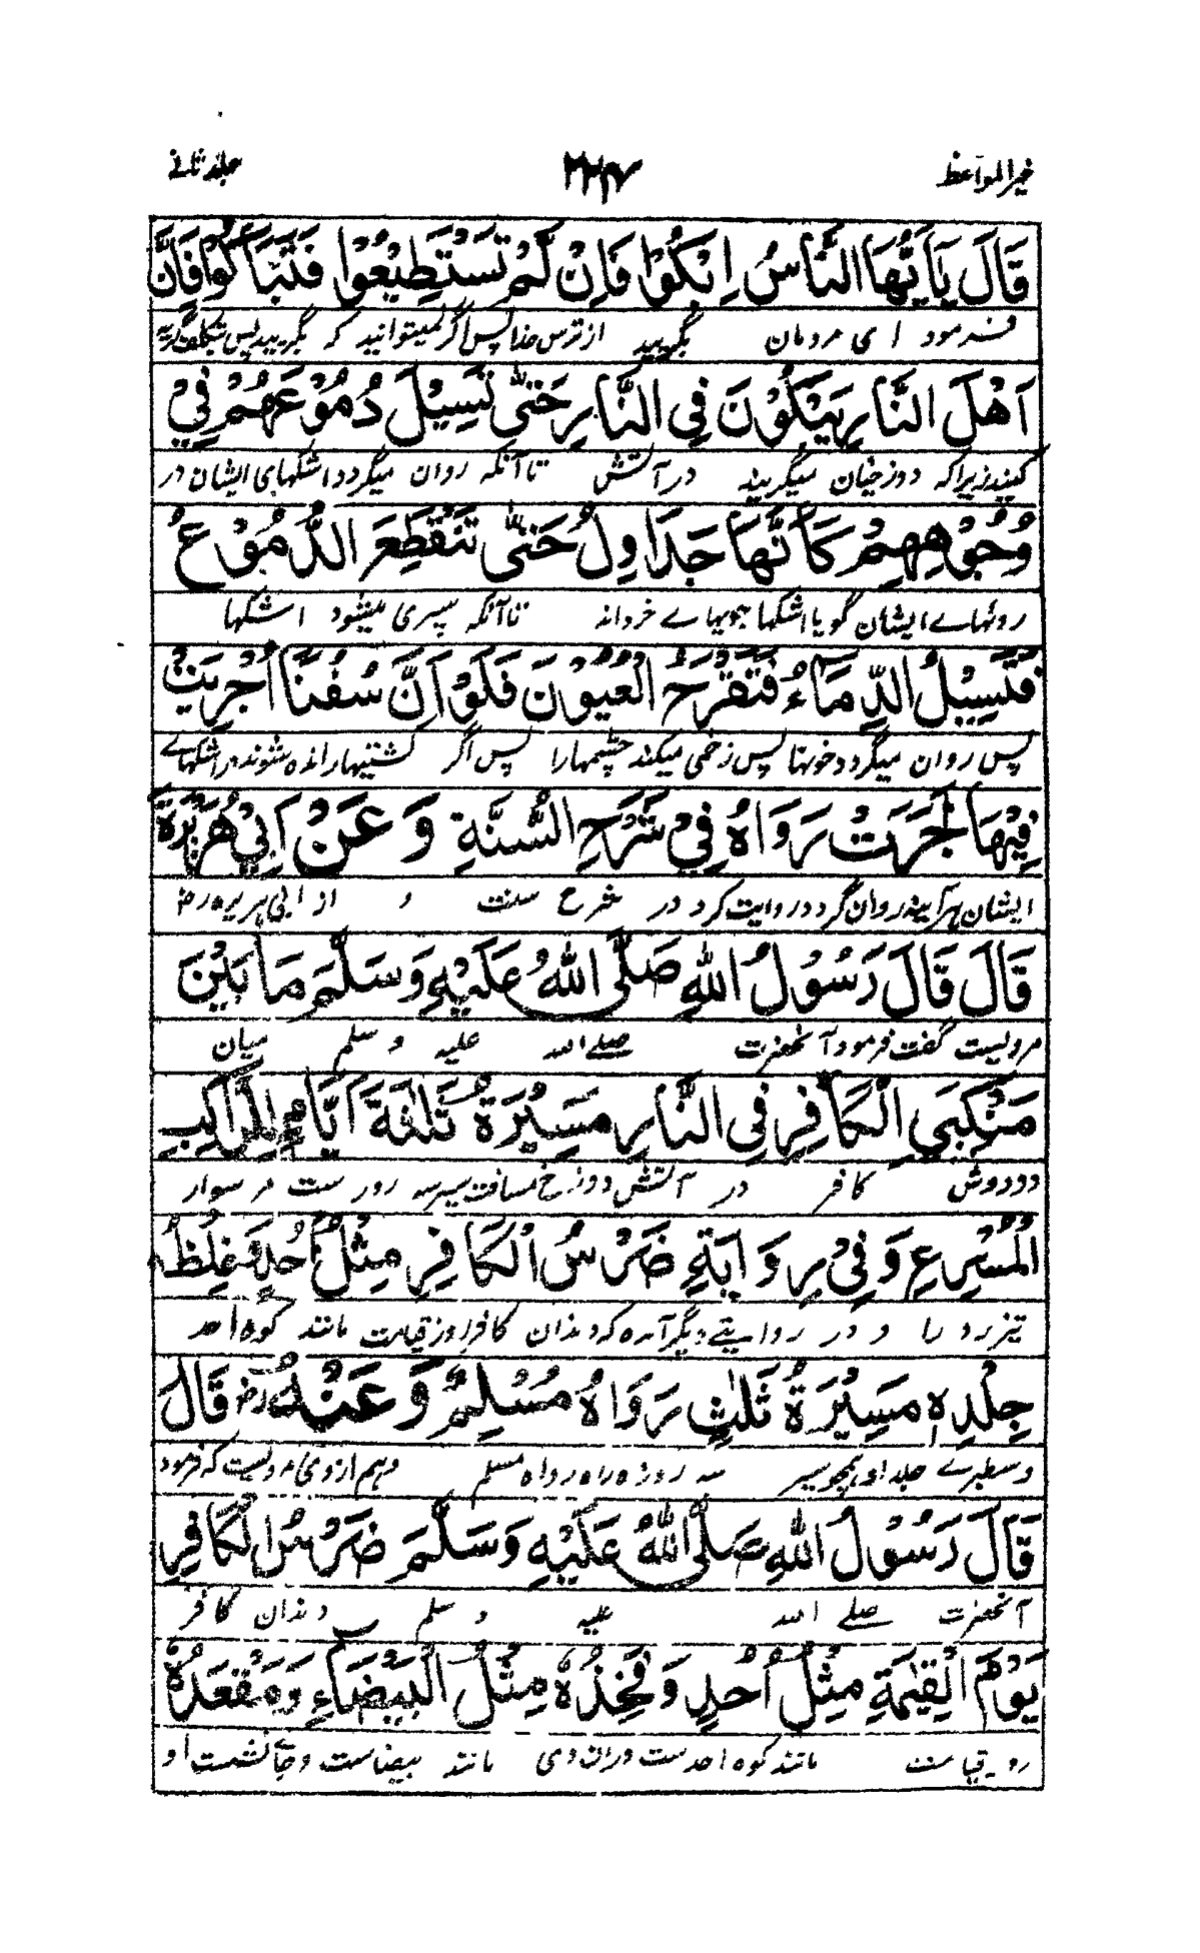 خیر المواعظ ۲۲۷ جلد ثانے
قَالَ يَا أَيُّهَا النَّاسُ ابْكُوْا فَاِنْ لَّمْ تَسْتَطِيْعُوْا فَتَبَاكَوْا فَاِنَّ
فرمود ای مردمان بگریید از ترس خدا پس اگر نمیتوانید که بگریید پس بتکلف گریه
اَهْلَ النَّارِ يَبْكُوْنَ فِي النَّارِ حَتّٰى تَسِيْلَ دُمُوْعُهُمْ فِيْ
کنید زیراکه دوزخیان میگریند در آتش تا آنکه روان میگردد اشکهای ایشان در
وُجُوْهِهِمْ كَاَنَّهَا جَدَاوِلُ حَتّٰى تَنْقَطِعَ الدُّمُوْعُ
روئهاے ایشان گویا اشکها جویهاے خرد اند تا آنکه سپری میشود اشکها
فَتَسِيْلُ الدِّمَاءُ فَتَقَرَّحُ الْعُيُوْنَ فَلَوْ اَنَّ سُفُنًا اُجْرِيَتْ
پس روان میگردد خونها پس زخمی میکند چشمها را پس اگر کشتیها رانده شوند در اشکهاے
فِيْهَا لَجَرَتْ رَوَاهُ فِيْ شَرْحِ السُّنَّةِ وَ عَنْ اَبِيْ هُرَيْرَةَ
ایشان هر آیینه روان گردد روایت کرد در شرح سنت و از ابی هریره رض
قَالَ قَالَ رَسُوْلُ اللهِ صَلَّى اللهُ عَلَيْهِ وَسَلَّمَ مَا بَيْنَ
مرویست گفت فرمود آنحضرت صلے الله علیه و سلم میان
مَنْكِبَيِ الْكَافِرِ فِي النَّارِ مَسِيْرَةُ ثَلٰثَةَ اَيَّامٍ لِلرَّاكِبِ
دو دوش کافر در آتش دوزخ مسافت سیر سه روز ست مر سوار
الْمُسْرِعِ وَفِيْ رِوَايَةٍ ضَرْسُ الْكَافِرِ مِثْلُ اُحُدٍ وَغِلَظُ
تیز رو را و در روایتے دیگر آمده که دندان کافر روز قیامت مانند کوه احد
جِلْدِهِ مَسِيْرَةُ ثَلٰثٍ رَوَاهُ مُسْلِمٌ وَعَنْهُ رض قَالَ
و سطبرے جلد او همچو سیر سه روزه راه رواه مسلم و هم ازوی مرویست که فرمود
قَالَ رَسُوْلُ اللهِ صَلَّى اللهُ عَلَيْهِ وَسَلَّمَ ضَرْسُ الْكَافِرِ
آنحضرت صلے الله علیه و سلم دندان کافر
يَوْمَ الْقِيٰمَةِ مِثْلُ اُحُدٍ وَفَخِذُهُ مِثْلُ الْبَيْضَاءِ وَمَقْعَدُهُ
روز قیامت مانند کوه احد ست و ران وی مانند بیضاست و جاے نشست او